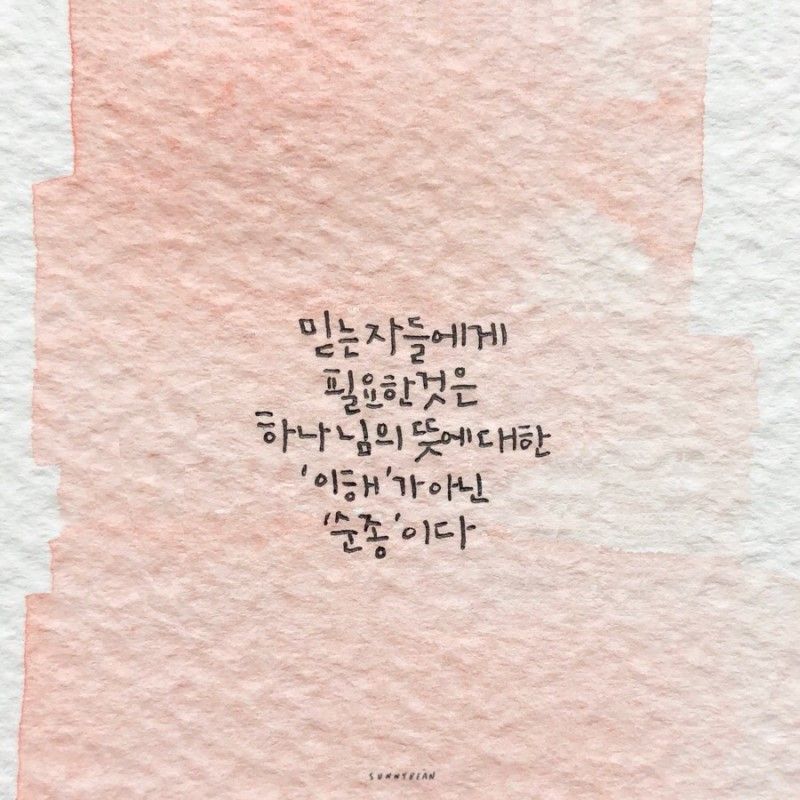 믿는 자들에게
필요한 것은
하나님의 뜻에 대한
'이해'가 아닌
'순종'이다
SUNNYBEAN